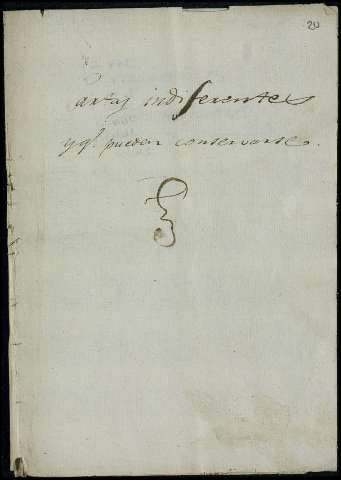 20
Cartas indiferentes
y q.e pueden conservarse.